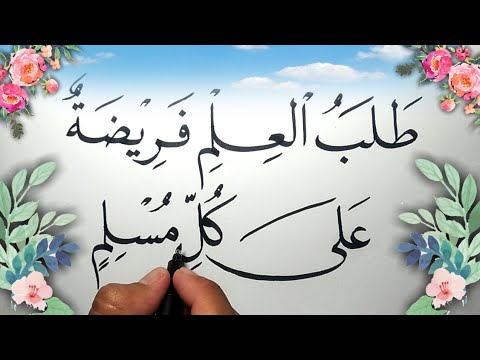 طَلَبُ الْعِلْمِ فَرِيْضَةٌ
عَلَى كُلِّ مُسْلِمٍ